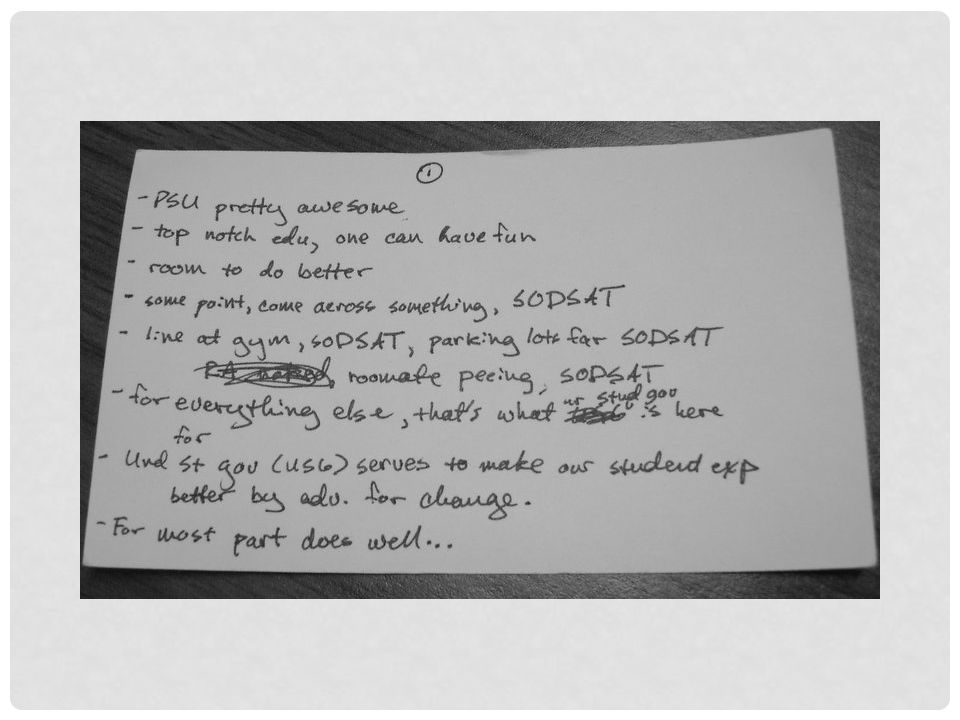 1
- PSU pretty awesome
- top notch edu, one can have fun
- room to do better
- some point, come across something, SODSAT
- line at gym, SODSAT, parking lots far SODSAT
RA naked, roomate peeing, SODSAT
ur stud gov
- for everything else, that's what is here
for
- Und st gov (USG) serves to make our student exp
better by adv. for change.
- For most part does well...